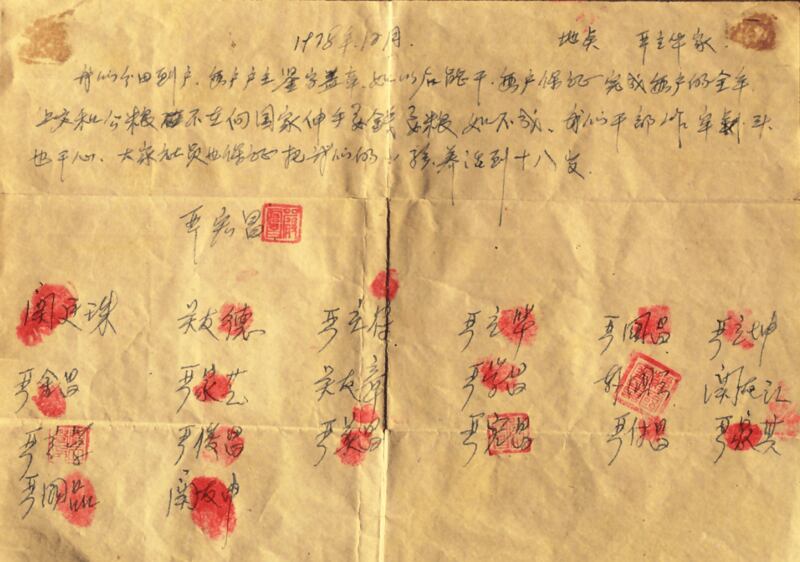 1978年12月. 地点 严立华家.
我们分田到户. 每户户主鉴字盖章. 如以后能干. 每户保证完成每户的全年
上交和公粮 不在向国家伸手要钱要粮 如不成. 我们干部作牢剎头
也干心. 大家社员也保证把我们的小孩养活到十八岁.
严宏昌
关廷珠 关友德 严立符 严立华 严国昌 严立坤
严金昌 严家芝 关友章 严学昌 韩国云 关友江
严立学 严俊昌 严美昌 严宏昌 严付昌 严家其
严国品 关友申